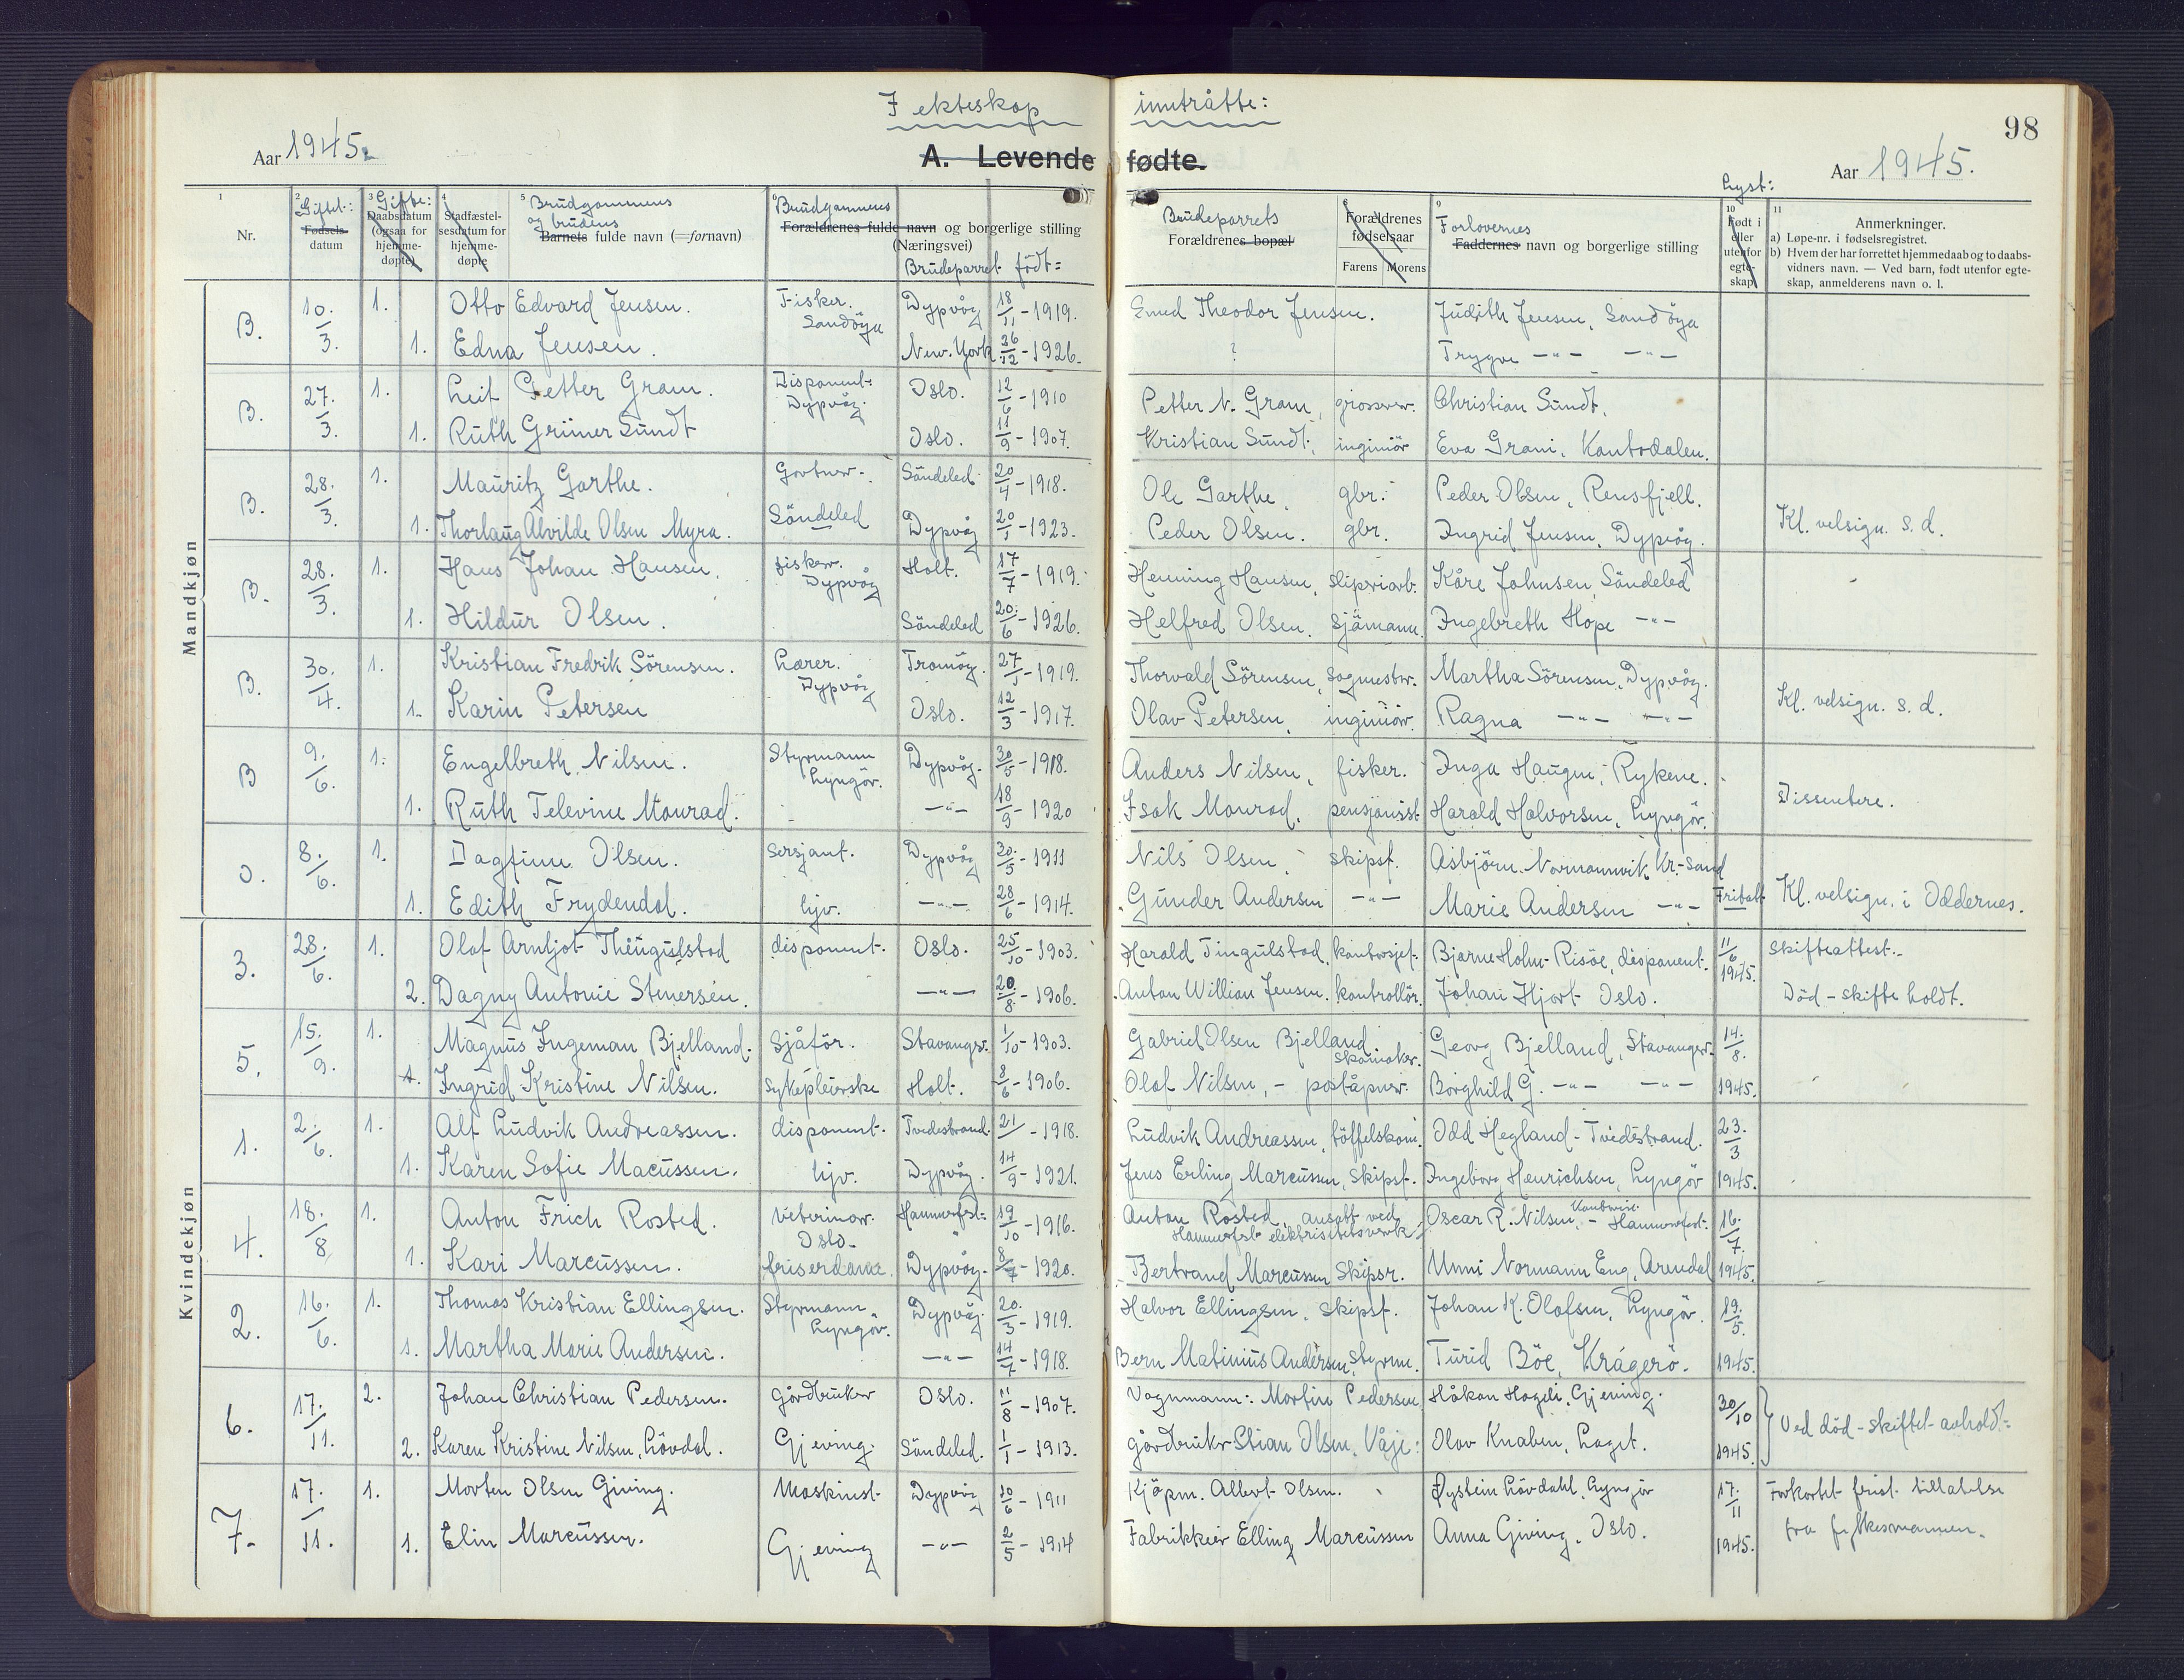 I ekteskap inntrådte:
98
Aar 1945.
A. Levende fødte.
Aar 1945.
lyst:
1 Nr.
2 Giftet: Fødsels datum
3 Gifte: Daabsdatum (ogsaa for hjemmedøpte)
4 Stadfæstelsesdatum for hjemmedøpte
5 Brudgommens og brudens Barnets fulde navn (= fornavn)
6 Brudgommens Forældrenes fulde navn og borgerlige stilling (Næringsvei) Brudeparret født:
Brudeparrets Forældrenes bopæl
8 Forældrenes fødselsaar Farens Morens
9 Forlovernes Faddernes navn og borgerlige stilling
10 Født i eller utenfor egteskap
11 Anmerkninger.
a) Løpe-nr. i fødselsregistret.
b) Hvem der har forrettet hjemmedaab og to daabsvidners navn. — Ved barn, født utenfor egteskap, anmelderens navn o. l.
Mandkjøn
Kvindekjøn
B. 10./3. 1. Otto Edvard Jensen. Fisker. Sandöya Dypvåg 18/11 - 1919. Theodor Jensen. Judith Jensen, Sandöya
1. Edna Jensen. New. York 26/12 - 1926. ? Trygve —"— —"—
B. 27./3. 1. Leif Petter Gram. Disponent. Dypvåg. Oslo. 12/6 - 1910 Petter N. Gram, grosser. Christian Sundt.
1. Ruth Grüner Sundt Oslo. 11/9 - 1907. Kristian Sundt, inginiör Eva Gram,
B. 28./3. 1. Mauritz Garthe. Gartner. Söndeled Söndeled 20/4 - 1918. Ole Garthe, gbr. Peder Olsen, Rensfjell.
1. Thorlaug Alvilde Olsen Myra. Dypvåg 20/1 - 1923. Peder Olsen. gbr. Ingrid Jensen, Dypvåg. Kl. velsign. s. d.
B. 28./3. 1. Hans Johan Hansen. fisker. Dypvåg Holt. 17/7 - 1919. Henning Hansen, sliperiarb. Kåre Johnsen, Söndeled
1. Hildur Olsen. Söndeled 20./6 - 1926. Helfred Olsen. sjömann. Ingebreth Hope —"—
B. 30./4. 1. Kristian Fredrik Sörensen. Lærer. Dypvåg Tromög. 27/1 - 1919. Thorvald Sörensen, sagmester. Martha Sörensen, Dypvåg.
1. Karin Petersen Oslo. 12/3 - 1917. Olav Petersen, inginiör. Ragna —"— —"— Kl. velsign. s. d.
B 9./6. 1. Engelbreth Nilsen. Styrmann Lyngör. Dypvåg. 30/5 - 1918. Anders Nilsen, fisker. Inga Haugen, Rykene.
1. Ruth Televine Monrad. —"— 18/9 - 1920 Isak Monrad, pensjonist Harald Halvorsen, Lyngör. Dissentere.
O. 8./6. 1. Dagfinn Olsen. Sersjant. Dypvåg 30./5 - 1911 Nils Olsen. skipsf. Asbjörn Normannvik Kr.-sand
1. Edith Frydendal. hjv. —"— 28/6 - 1914. Gunder Andersen —"— Marie Andersen —"— Fritatt Kl. velsign. i Oddernes.
3. 28./6. 1. Olaf Arntjot Thingulstad disponent. Oslo. 25/10 - 1903. Harald Tingulstad, kontorsjef. Bjarne Holm-Risöe, disponent. 11/6 1945. Skifteattest.
2. Dagny Antonie Stenersen. —"— 20/8 - 1906. Anton Willian Jensen. kontrollör. Johan Hjort Oslo. Död - skifte holdt.
5. 15./9. 1. Magnus Ingeman Bjelland. Sjåför. Stavanger. 1/10 - 1903. Gabriel Olsen Bjelland skomaker. Georg Bjelland, Stavanger. 14./8.
1. Ingrid Kristine Nilsen. Sykepleierske Holt. 8/6 - 1906. Olaf Nilsen, - poståpner. Borghild G. —"— —"— 1945.
1. 2./6. 1. Alf Ludvik Andreassen. disponent. Tvedestrand. 21/ - 1918. Ludvik Andreassen, töffelskom. Odd Hegland - Tvedestrand. 23./3
1. Karen Sofie Macussen. hjv. Dypvåg. 14/9 - 1921. Jens Erling Marcussen, Skipsf. Ingeborg Henrichsen, Lyngör 1945.
4. 18./8. 1. Anton Frich Rosted. Veterinær. Oslo. Hammerfest. 19/10 - 1916. Anton Rosted, ansatt ved Hammerfest elektrisitetsverk. Oscar R. Nilsen, - Hammerfest. 16./7.
1. Kari Marcussen. friserdame. Dypvåg. 8/7 - 1920. Bertrand Marcussen Skipsr. Unni Normann Eng, Arendal 1945.
2. 16./6. 1. Thomas Kristian Ellingsen. Styrmann. Lyngör. Dypvåg. 20./3 - 1919. Halvor Ellingsen. skipsf. Johan K. Olofsen, Lyngör. 19./5.
1. Martha Marie Andersen. —"— 14/7 - 1918. Bern Matinius Andersen, Styrm. Turid Böe, Krågerö. 1945.
6. 17./11. 2. Johan Christian Pedersen. gårdbruker Gjeving. Oslo. 11/8 - 1907. Vognmann: Martin Pedersen Håkon Hageli, Gjeving. 30/10 1945.
2. Karen Kristine Nilsen, Lövdal. Söndeled. 1/1 - 1913. gårdbruker Stian Olsen, Våje: Olav Knaben, Laget. Ved död - skiftet avholdt.
7. 17./11. 1. Morten Olsen Giving. Maskinist Gjeving Dypvåg 10/6 - 1911 Kjöpm. Albert Olsen. Øystein Lövdahl, Lyngör 17./11 1945. Forkortet frist tillatelse
1. Elin Marcussen. —"— 2/5 - 1914 Fabrikkeier Elling Marcussen Anna Giving, Oslo. fra fylkesmannen.